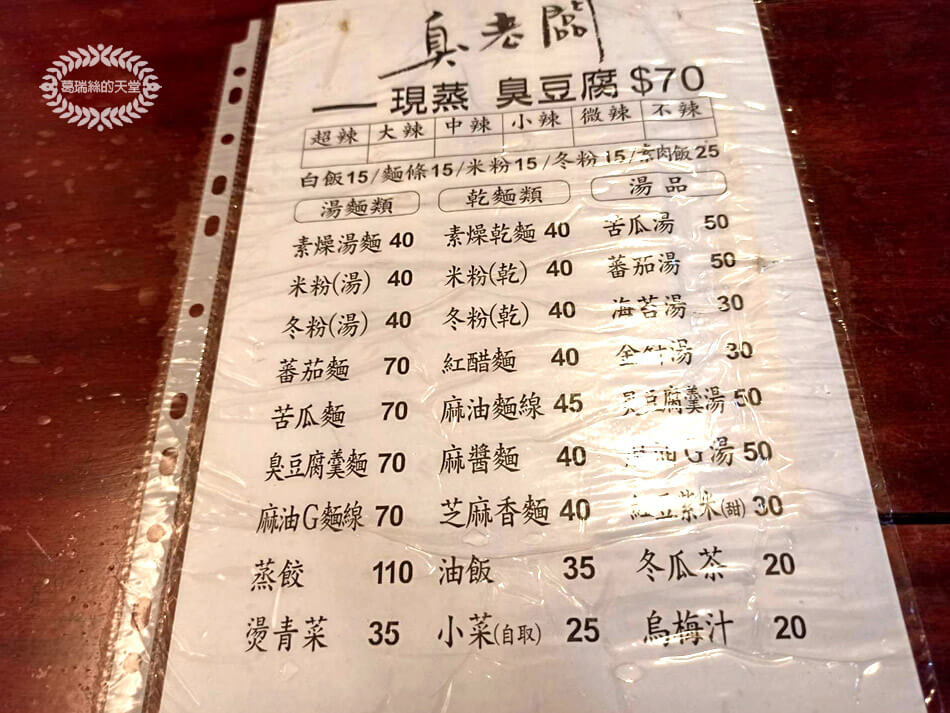 葛瑞絲的天堂
臭老闆
現蒸 臭豆腐 $70
超辣 大辣 中辣 小辣 微辣 不辣
白飯15/麵條15/米粉15/冬粉15/素肉飯25
湯麵類 乾麵類 湯品
素燥湯麵 40 素燥乾麵 40 苦瓜湯 50
米粉(湯) 40 米粉(乾) 40 蕃茄湯 50
冬粉(湯) 40 冬粉(乾) 40 海苔湯 30
蕃茄麵 70 紅醋麵 40 金針湯 30
苦瓜麵 70 麻油麵線 45 臭豆腐羹湯 50
臭豆腐羹麵 70 麻醬麵 40 麻油G湯 50
麻油G麵線 70 芝麻香麵 40 紅豆紫米(甜) 30
蒸餃 110 油飯 35 冬瓜茶 20
燙青菜 35 小菜(自取) 25 烏梅汁 20